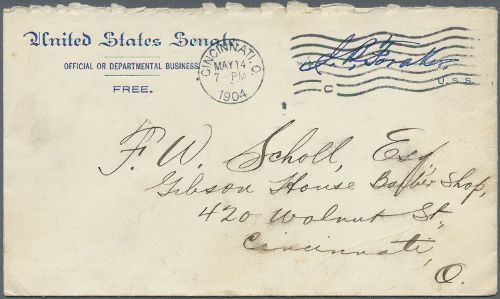 United States Senate
OFFICIAL OR DEPARTMENTAL BUSINESS
FREE.
CINCINNATI, O.
MAY 14
7-PM
1904
J. B. Foraker
C
U.S.S.
F. W. Scholl, Esq,
Gibson House Barber Shop,
420 Walnut St,
Cincinnati,
O.